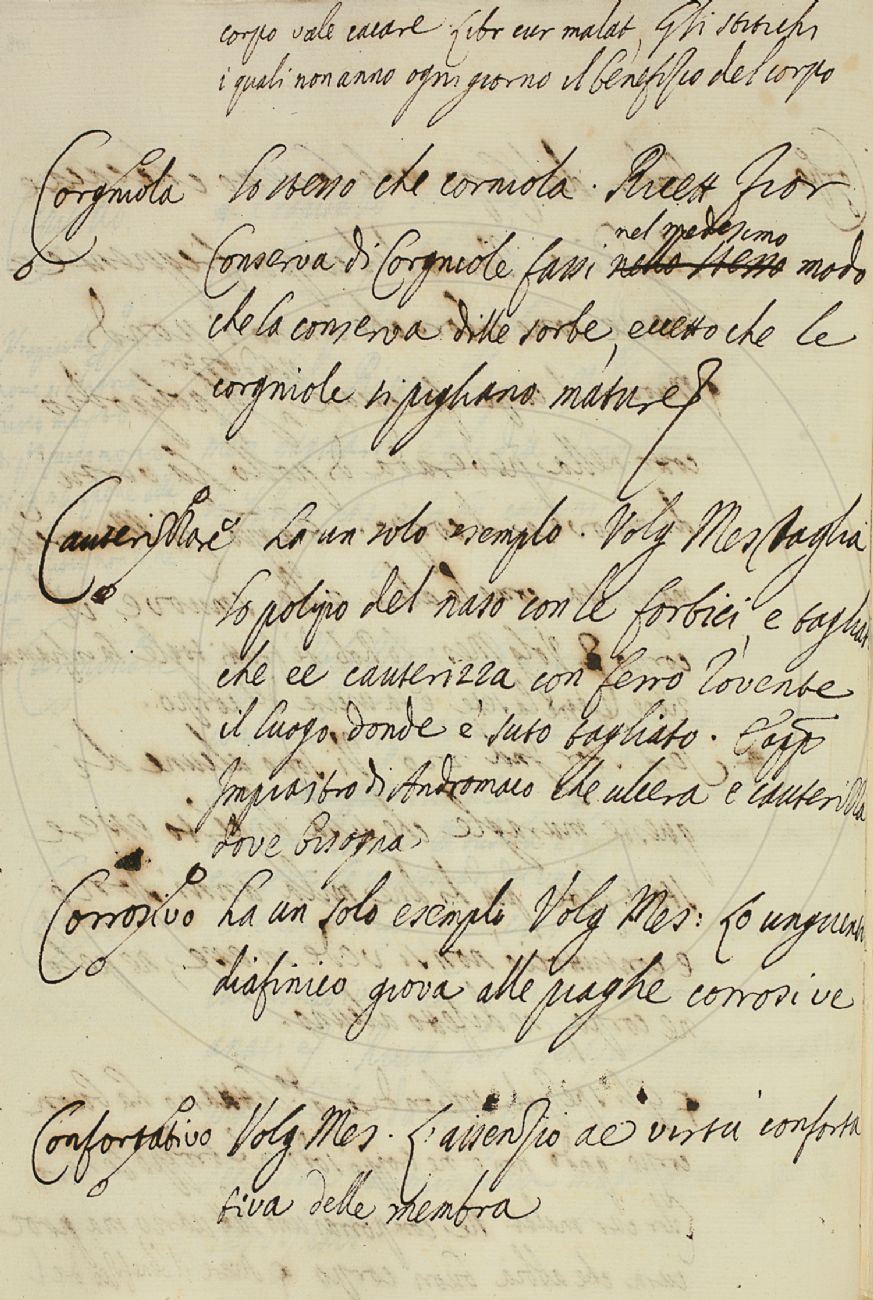 corpo vale cacare. Libr cur malat, Gli stitichi
i quali non anno ogni giorno il benefizio del corpo
Corgniola lo stesso che corniola. Ricett Fior
nel medesimo
Conserva di Corgniole fassi nello stesso modo
che la conserva dille sorbe, eccetto che le
corgniole si pigliano mature
Cauterizzare ha un solo esemplo. Volg Mes taglia
lo polipo del naso con le forbici, e tagliat
che ee cauterizza con ferro rovente
il luogo donde e' suto tagliato.
Impiastro di Andromaco che ulcera e cauterizza
dove bisogna
Corrosivo ha un solo esemplo Volg Mes: Lo unguento
diafinico giova alle piaghe corrosive
Confortativo Volg Mes. L'assenzio ae virtu' conforta
tiva delle membra